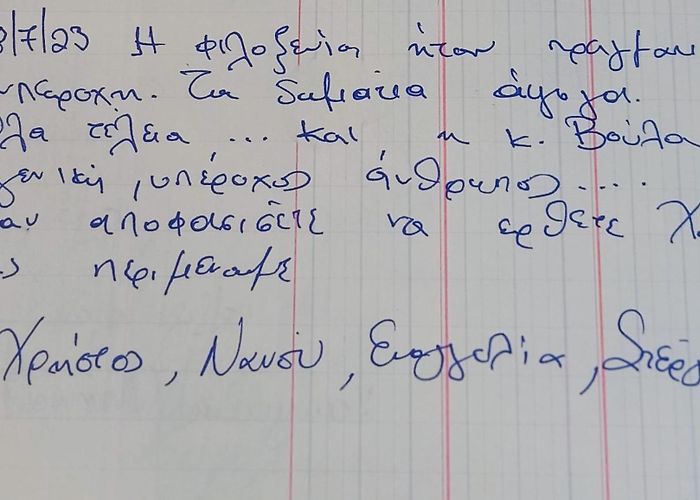 8/7/23 Η φιλοξενία ήταν πραγμα
υπέροχη. Τα δωμάτια άψογα.
λα τέλεια ... και η κ. Βούλα
γενική, υπέροχος άνθρωπος ....
αν αποφασίσετε να ερθετε Χ
ς περιμεναμε
Χρήστος, Νανσυ, Ευαγγελία, Σπέρο